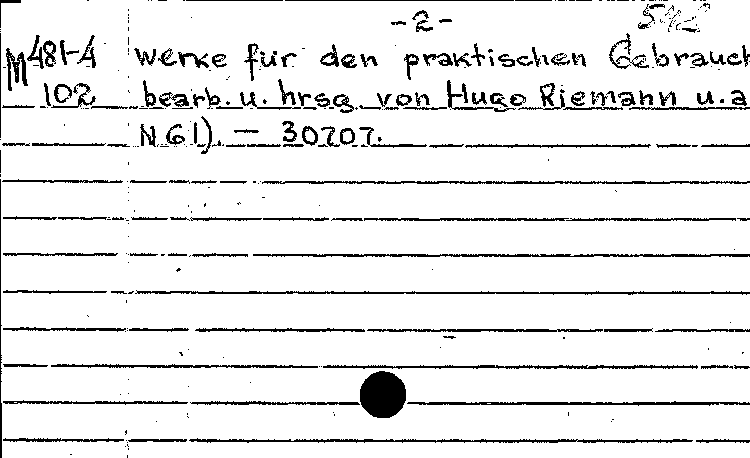 -2-
M 481-4 werke für den praktischen Gebrauch
102 bearb. u. hrsg. von Hugo Riemann u. a
N 61). — 30707.